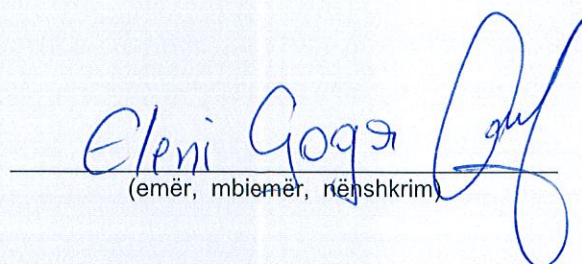 Eleni Goga
(emër, mbiemër, nënshkrim)